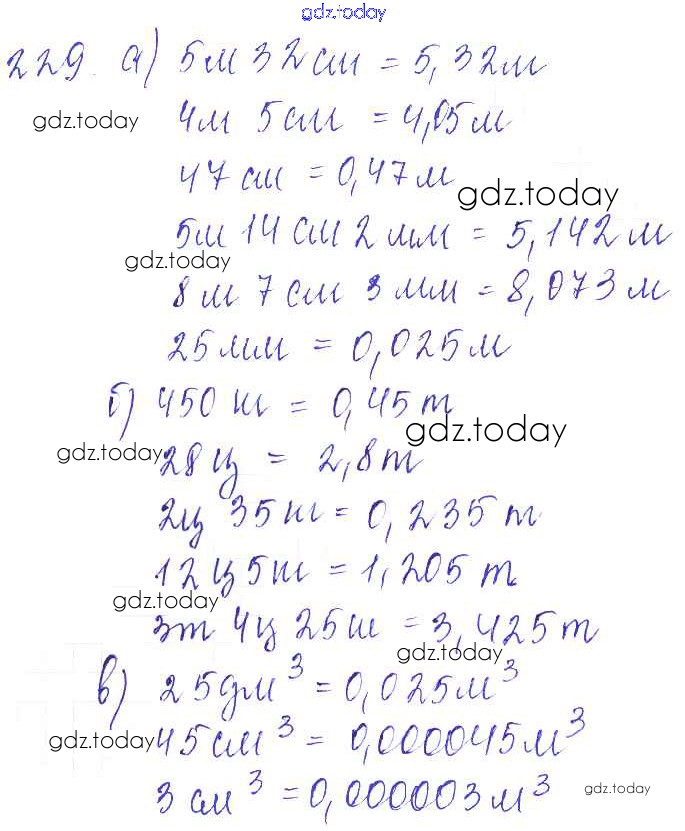 gdz.today
229. а) 5м 32см = 5,32м
gdz.today 4м 5см = 4,05м
47см = 0,47м
gdz.today
5м 14см 2мм = 5,142м
gdz.today
8м 7см 3мм = 8,073м
25мм = 0,025м
б) 450кг = 0,45т
gdz.today
gdz.today 28ц = 2,8т
2ц 35кг = 0,235т
12ц 5кг = 1,205т
gdz.today
3т 4ц 25кг = 3,425т
gdz.today
в) 25дм³ = 0,025м³
gdz.today 45см³ = 0,000045м³
3см³ = 0,000003м³ gdz.today